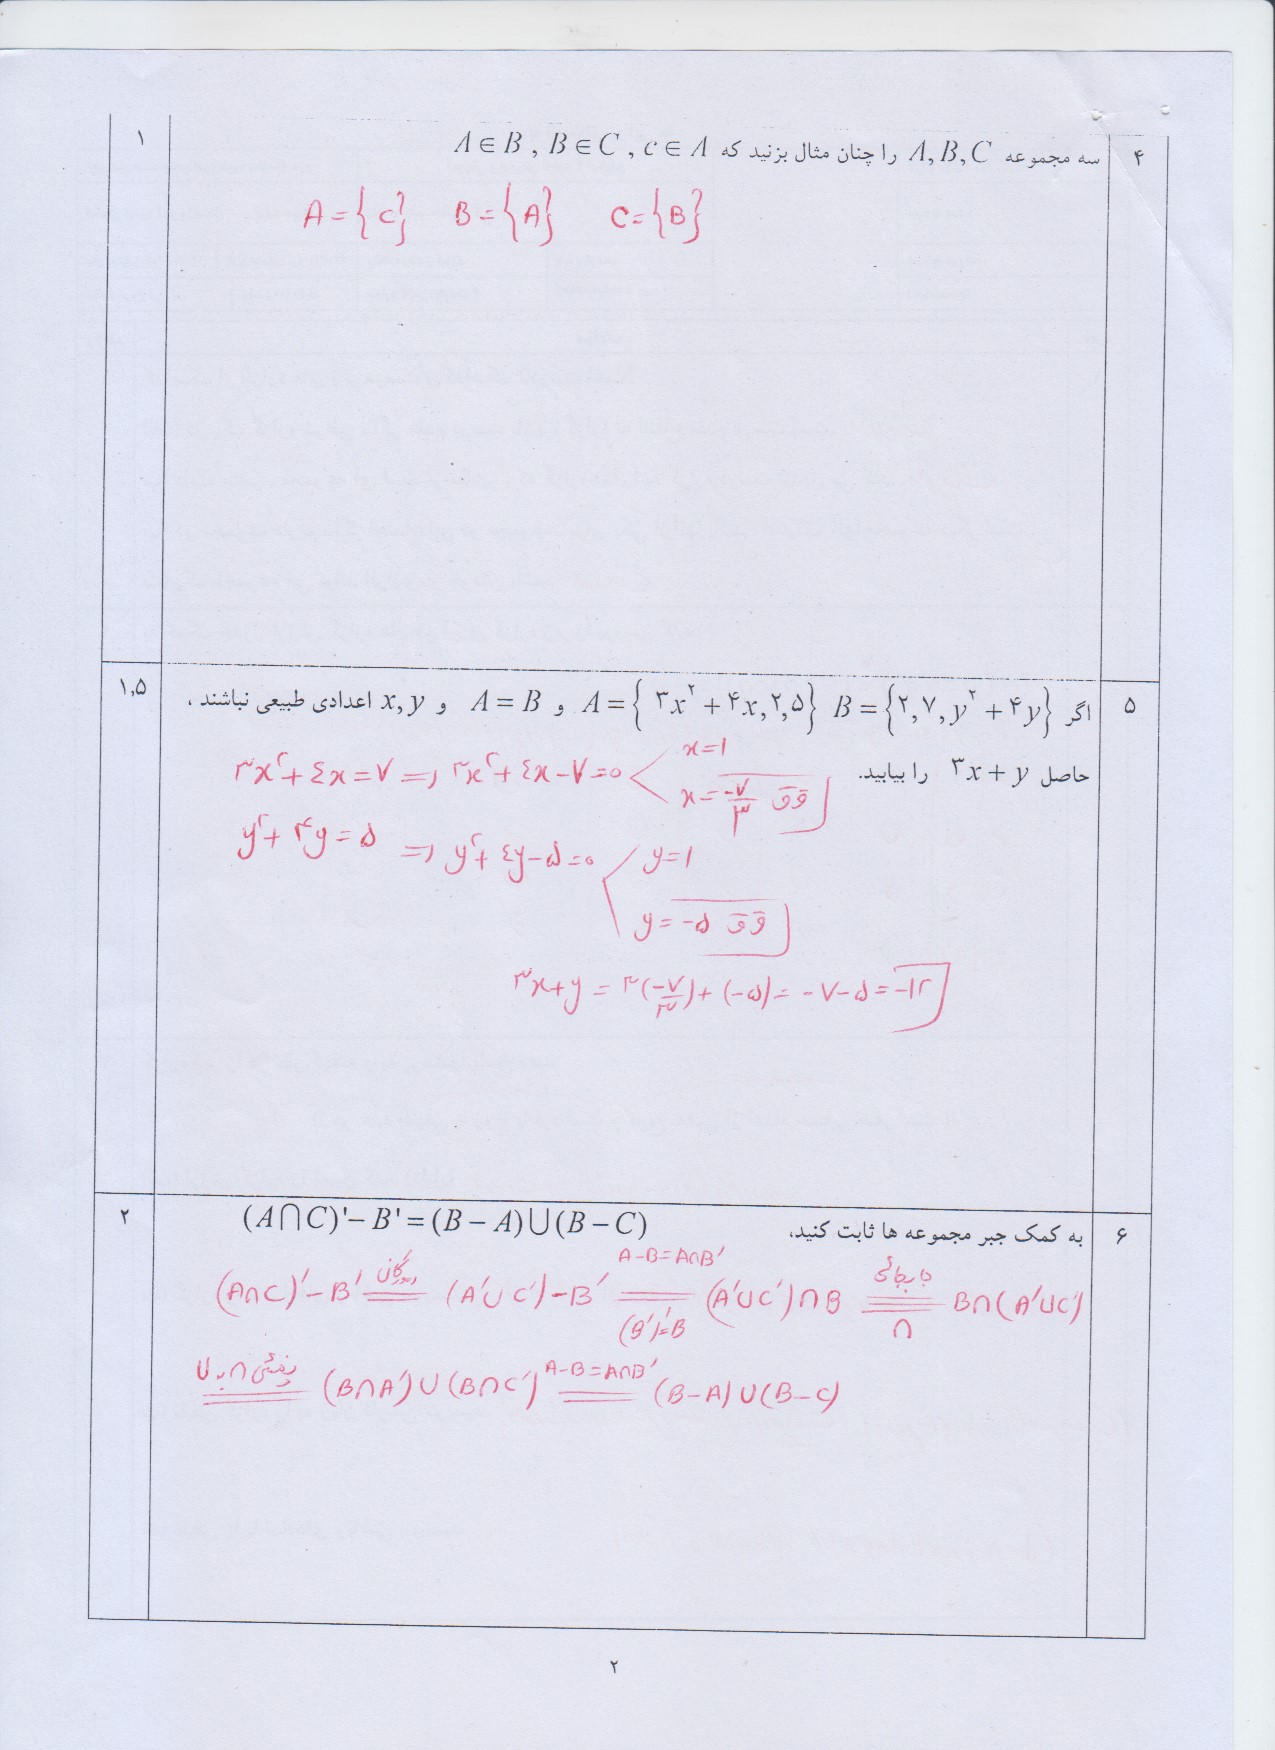 ۴ سه مجموعه A, B, C را چنان مثال بزنید که A ∈ B , B ∈ C , c ∈ A ۱
A = {C} B = {A} C = {B}
۵ اگر A = { ۳x^۲ + ۴x, ۲, ۵} B = {۲, ۷, y^۲ + ۴y} و A = B و x, y اعدادی طبیعی نباشند ، ۱,۵
حاصل ۳x + y را بیابید.
۳x^۲ + ٤x = ۷ ⇒ ۳x^۲ + ٤x − ۷ = ۰ x = ۱
x = −۷/۳ ق ق
y^۲ + ۴y = ۵ ⇒ y^۲ + ٤y − ۵ = ۰ y = ۱
y = −۵ ق ق
۳x + y = ۳(−۷/۳) + (−۵) = −۷ − ۵ = −۱۲
۶ به کمک جبر مجموعه ها ثابت کنید. (A ∩ C)' − B' = (B − A) ∪ (B − C) ۲
A − B = A ∩ B'
(A ∩ C)' − B' = (A' ∪ C') − B' = (A' ∪ C') ∩ B جابجائی = B ∩ (A' ∪ C')
(B')' = B ∩
= (B ∩ A') ∪ (B ∩ C') A − B = A ∩ B' = (B − A) ∪ (B − C)
۲